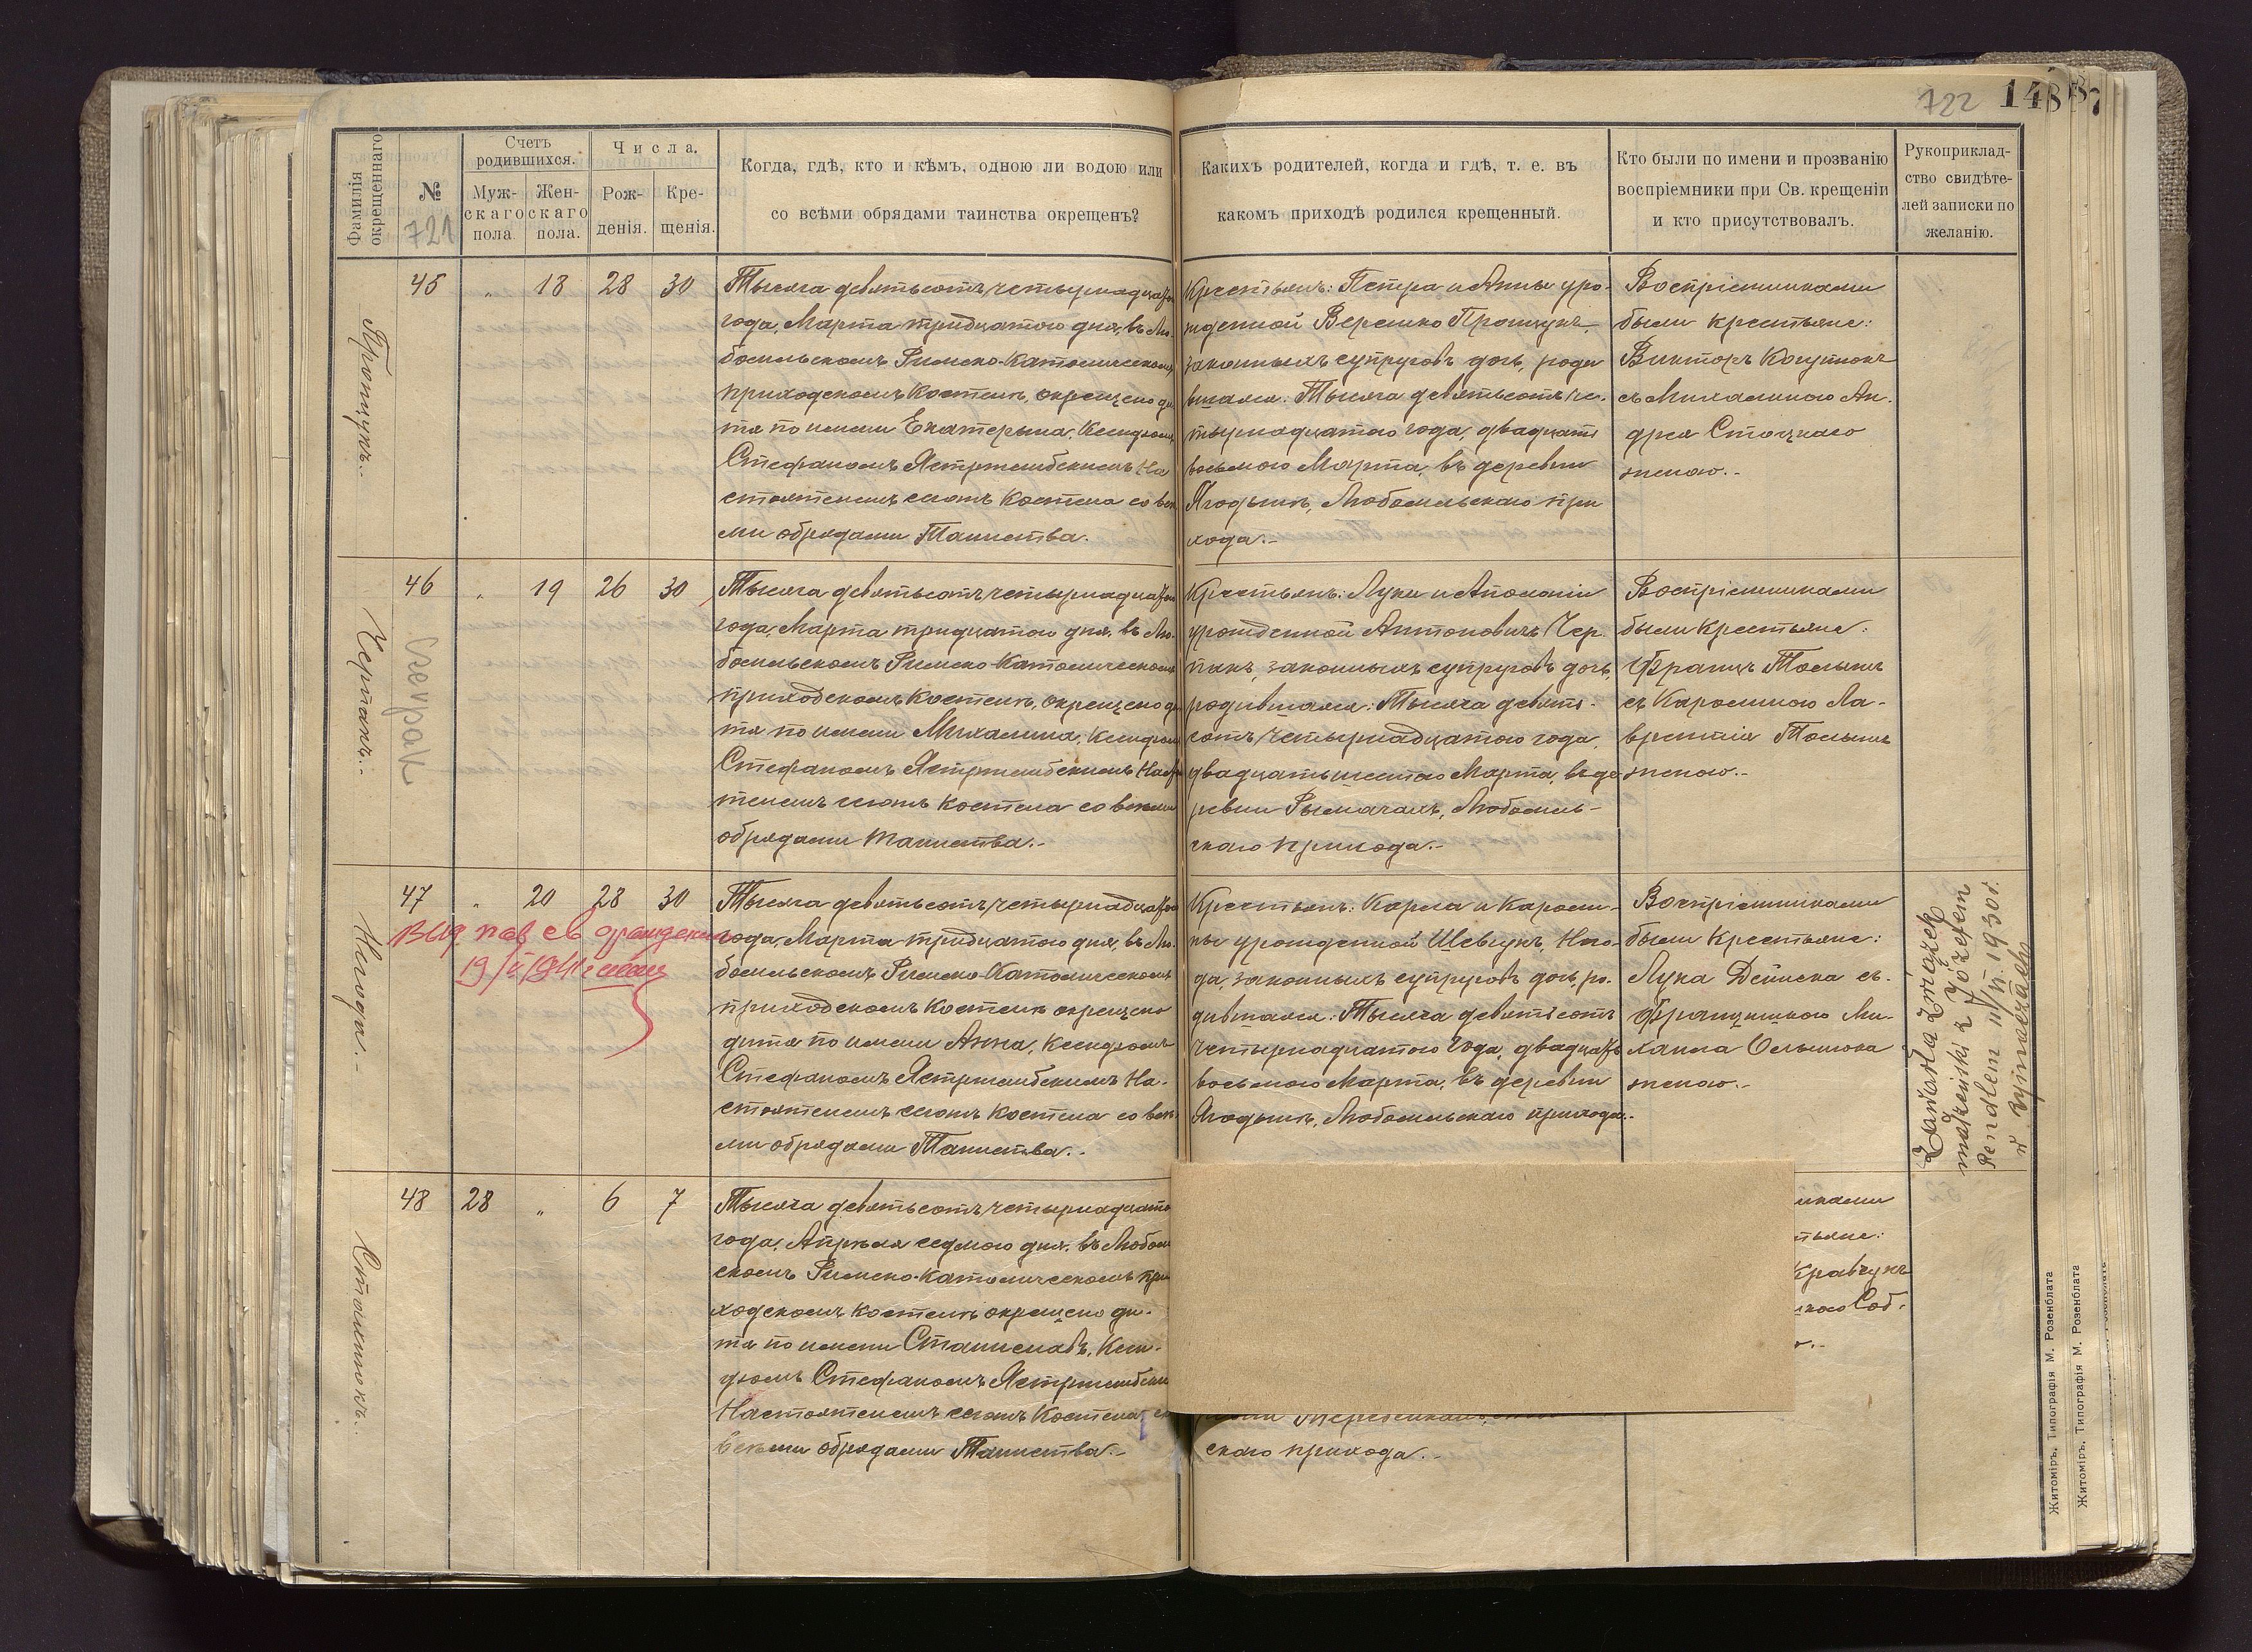 722 148 87
Фамилія окрещеннаго
№
721
Счетъ родившихся.
Мужскаго пола.
Женскаго пола.
Числа.
Рожденія.
Крещенія.
Когда, гдѣ, кто и кѣмъ, одною ли водою или
со всѣми обрядами таинства окрещенъ?
Какихъ родителей, когда и гдѣ, т. е. въ
какомъ приходѣ родился крещенный.
Кто были по имени и прозванію
воспріемники при Св. крещеніи
и кто присутствовалъ.
Рукоприклад-
ство свидѣте-
лей записки по
желанію.
Прощукъ.
45 „ 18 28 30
Тысяча девятьсотъ четырнадцатого
года, Марта тридцатого дня, въ Лю-
бомльскомъ Римско-Католическомъ
приходскомъ Костелѣ, окрещено ди
тя по имени Екатерина, Ксендзомъ
Стефаномъ Ястржембскимъ На
стоятелемъ сего Костела со всѣ
ми обрядами Таинства.
Крестьянъ: Петра и Анны уро-
жденной Верешко Прощукъ,
законныхъ супруговъ дочь, роди
вшаяся: Тысяча девятьсотъ че-
тырнадцатого года, двадцать
восьмого Марта, въ деревни
Ягодынѣ, Любомльскаго при
хода.-
Воспріемниками
были крестьяне:
Викторъ Когутюкъ
съ Михалиною Ан-
дрея Стоцкаго
женою.-
Черпакъ.-
Czerpak
46 „ 19 26 30
Тысяча девятьсотъ четырнадцатого
года, Марта тридцатого дня, въ Лю-
бомльскомъ Римско-Католическомъ
приходскомъ Костелѣ, окрещено ди
тя по имени Михалина, Ксендзомъ
Стефаномъ Ястржембскимъ Настоя
телемъ сего Костела со всѣми
обрядами таинства.-
Крестьянъ: Луки и Аполоніи
урожденной Антоновичъ Чер-
пакъ, законныхъ супруговъ дочь,
родившаяся: Тысяча девять-
сотъ четырнадцатого года,
двадцать шестого Марта, въ де
ревни Рымачахъ, Любомль-
скаго прихода.-
Воспріемниками
были Крестьяне:
Францъ
съ Каролиною Ла-
врентія
женою.-
Нагода.-
47 „ 20 28 30
19/ 1941
Тысяча девятьсотъ четырнадцатого
года, Марта тридцатого дня, въ Лю-
бомльскомъ Римско-Католическомъ
приходскомъ Костелѣ окрещено
дитя по имени Анна, Ксендзомъ
Стефаномъ Ястржембскимъ На-
стоятелемъ сего Костела со всѣ
ми обрядами Таинства.-
Крестьянъ: Карла и Кароли-
ны урожденной Шевчукъ, Наго-
да, законныхъ супруговъ дочь, ро-
дившаяся: Тысяча девятьсотъ
четырнадцатого года, двадцать
восьмого Марта, въ деревни
Ягодынѣ, Любомльскаго прихода.-
Воспріемниками
были Крестьяне:
Лука Дейнека съ
Францишкою Ми-
хаила
женою.-
Zawarła związek
małżeński z Józefem
Rendlem 11/II. 1930 r.
w Rymaczach
48 28 „ 6 7
Тысяча девятьсотъ четырнадцатого
года, Апрѣля седмого дня, въ Любомль
скомъ Римско-Католическомъ при
ходскомъ Костелѣ окрещено ди-
тя по имени Станиславъ, Ксен-
дзомъ Стефаномъ Ястржембски
Настоятелемъ сего Костела со
всѣми обрядами Таинства.-
скаго прихода.-
никами
тьяне:
Кравчукъ
Соб-
Житоміръ, Типографія М. Розенблата
Житоміръ, Типографія М. Розенблата